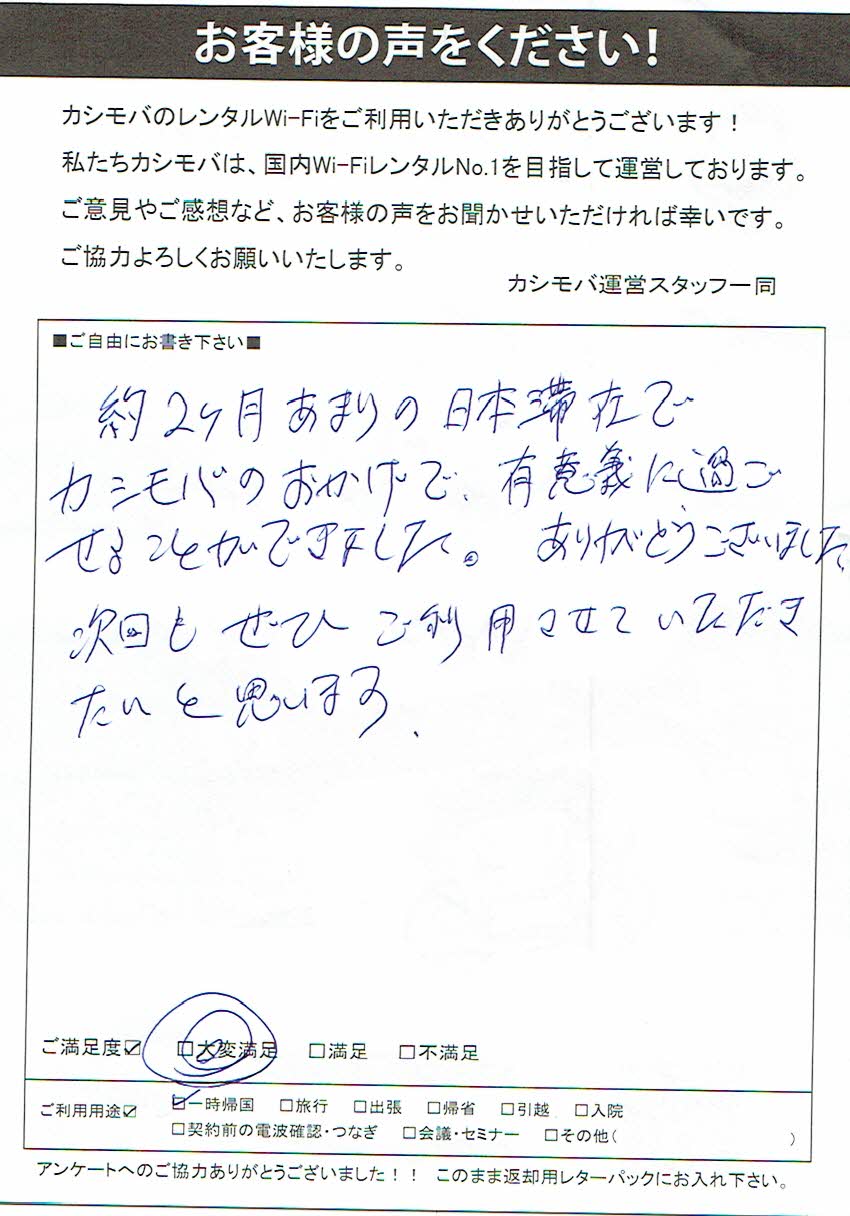 お客様の声をください!
カシモバのレンタルWi-Fiをご利用いただきありがとうございます！
私たちカシモバは、国内Wi-FiレンタルNo.1を目指して運営しております。
ご意見やご感想など、お客様の声をお聞かせいただければ幸いです。
ご協力よろしくお願いいたします。
カシモバ運営スタッフ一同
■ご自由にお書き下さい■
約2ヶ月あまりの日本滞在で
カシモバのおかげで、有意義に過ご
せることができました。ありがとうございました
次回もぜひご利用させていただき
たいと思います.
ご満足度☑ □大変満足 □満足 □不満足
ご利用用途☑ ☑一時帰国 □旅行 □出張 □帰省 □引越 □入院
□契約前の電波確認・つなぎ □会議・セミナー □その他( )
アンケートへのご協力ありがとうございました！！ このまま返却用レターパックにお入れ下さい。